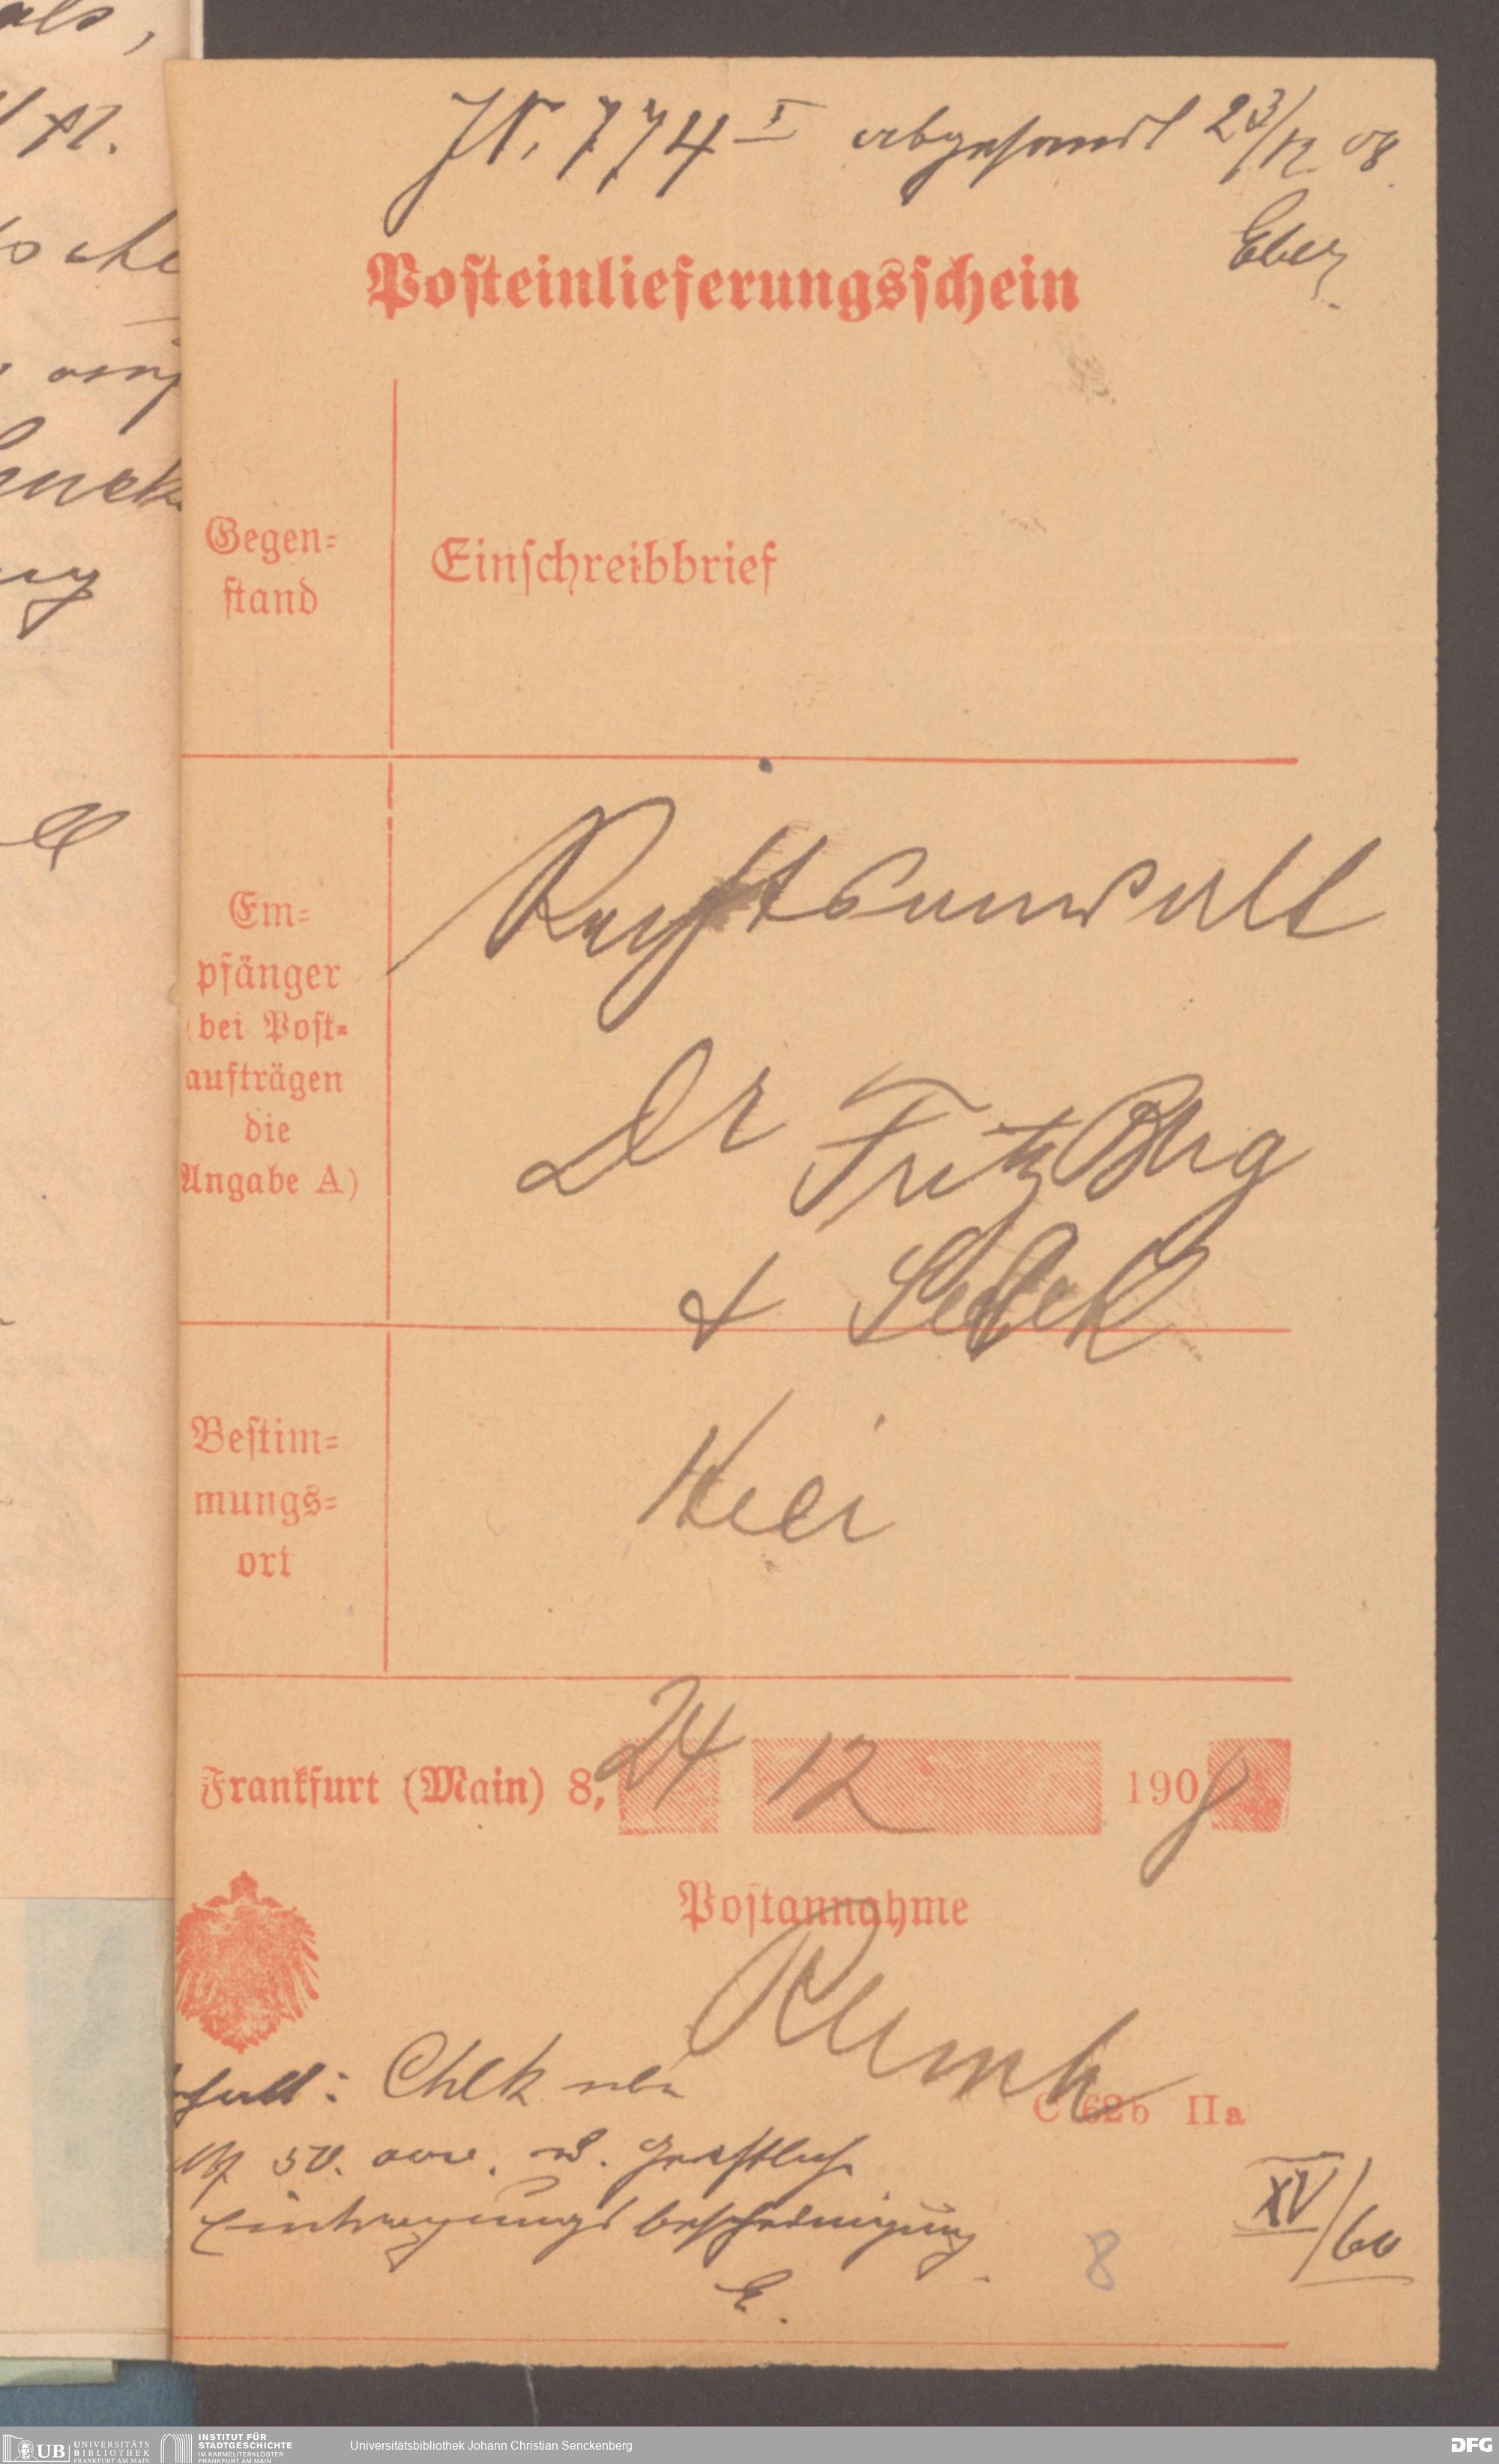 als,
Nr. 774 I abgesandt 23/12. 08.
Eber
Posteinlieferungsschein
Gegen=
stand
Einschreibbrief
Em=
pfänger
(bei Post=
aufträgen
die
Angabe A)
Rechtsanwalt
Dr Fritz Berg
&
Bestim=
mungs=
ort
Hier
Frankfurt (Main) 8, 24 12 1908
Postannahme
C 62b IIa
Chek
50. u. gerichtlich
Eintragungsbescheinigung
E.
8
XV/60
UB UNIVERSITÄTS
BIBLIOTHEK
FRANKFURT AM MAIN
INSTITUT FÜR
STADTGESCHICHTE
IM KARMELITERKLOSTER
FRANKFURT AM MAIN
Universitätsbibliothek Johann Christian Senckenberg
DFG